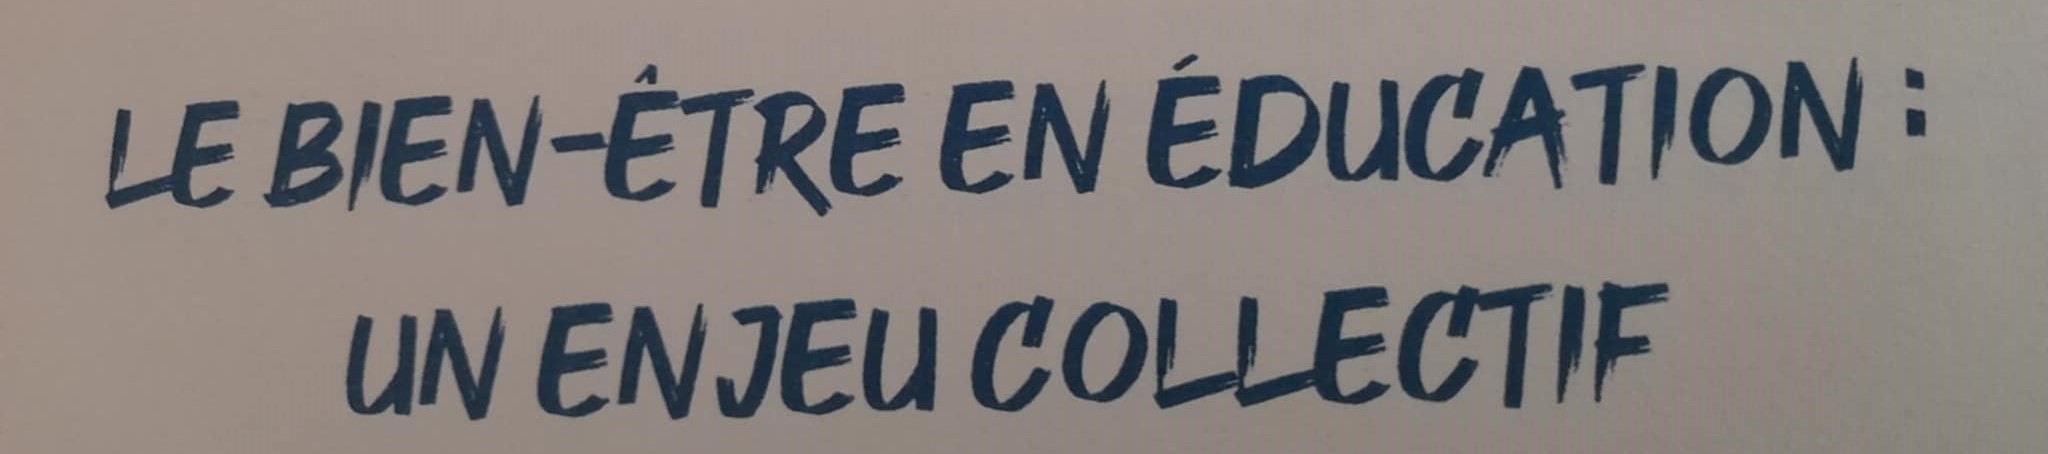 LE BIEN-ÊTRE EN ÉDUCATION :
UN ENJEU COLLECTIF